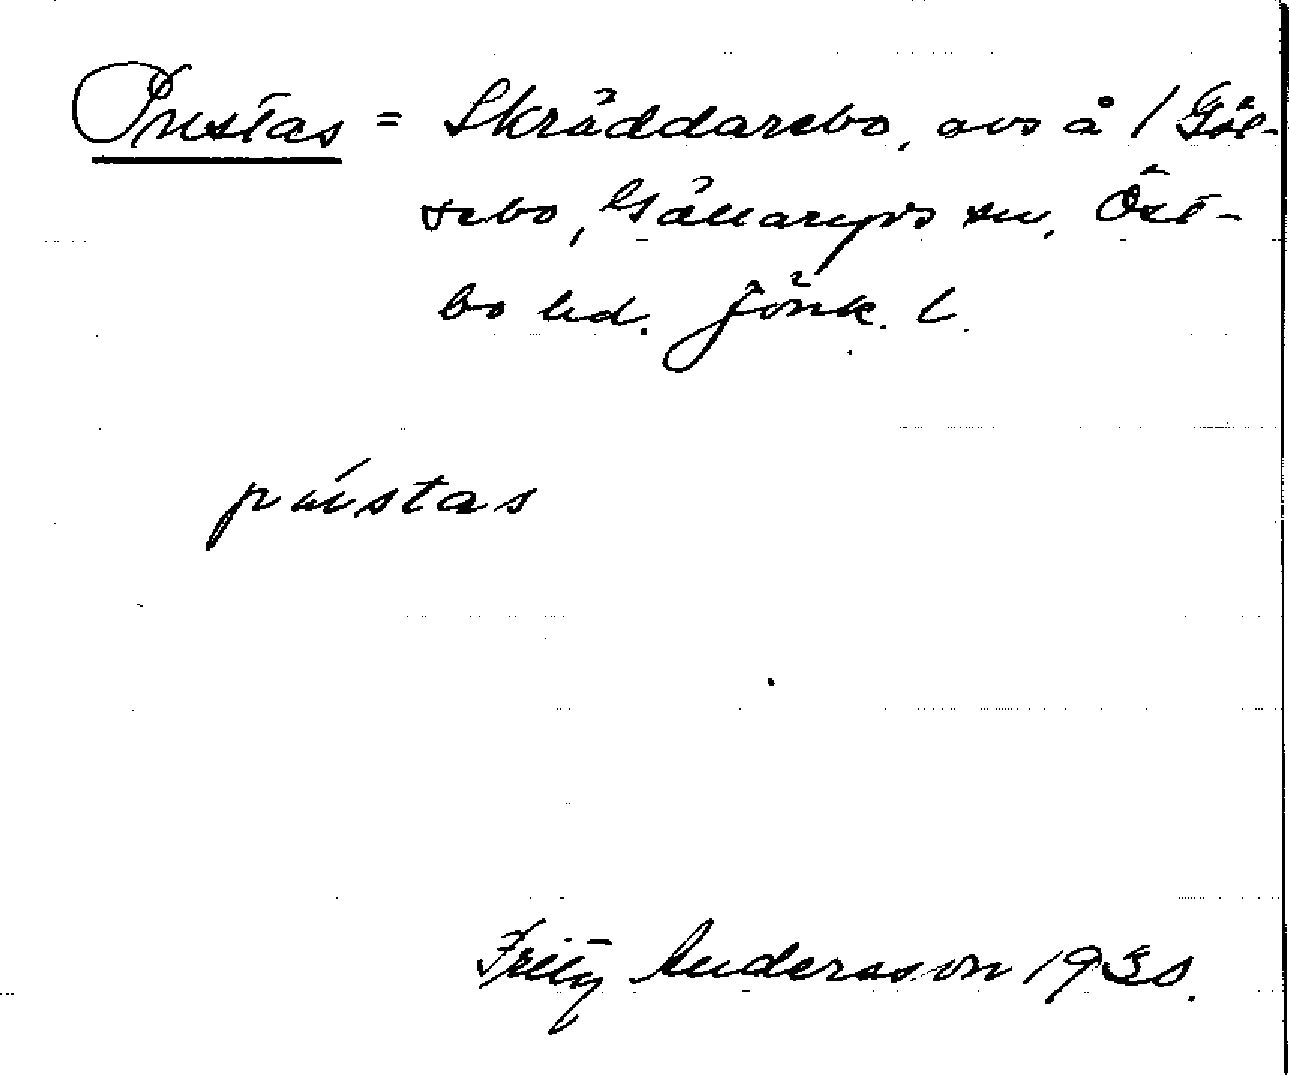 Pustas = Skräddarebo, avs å 1 Göl-
sebo, Gällaryds sn, Öst-
bo hd. Jönk. l.
pústas
Fritz Andersson 1930.